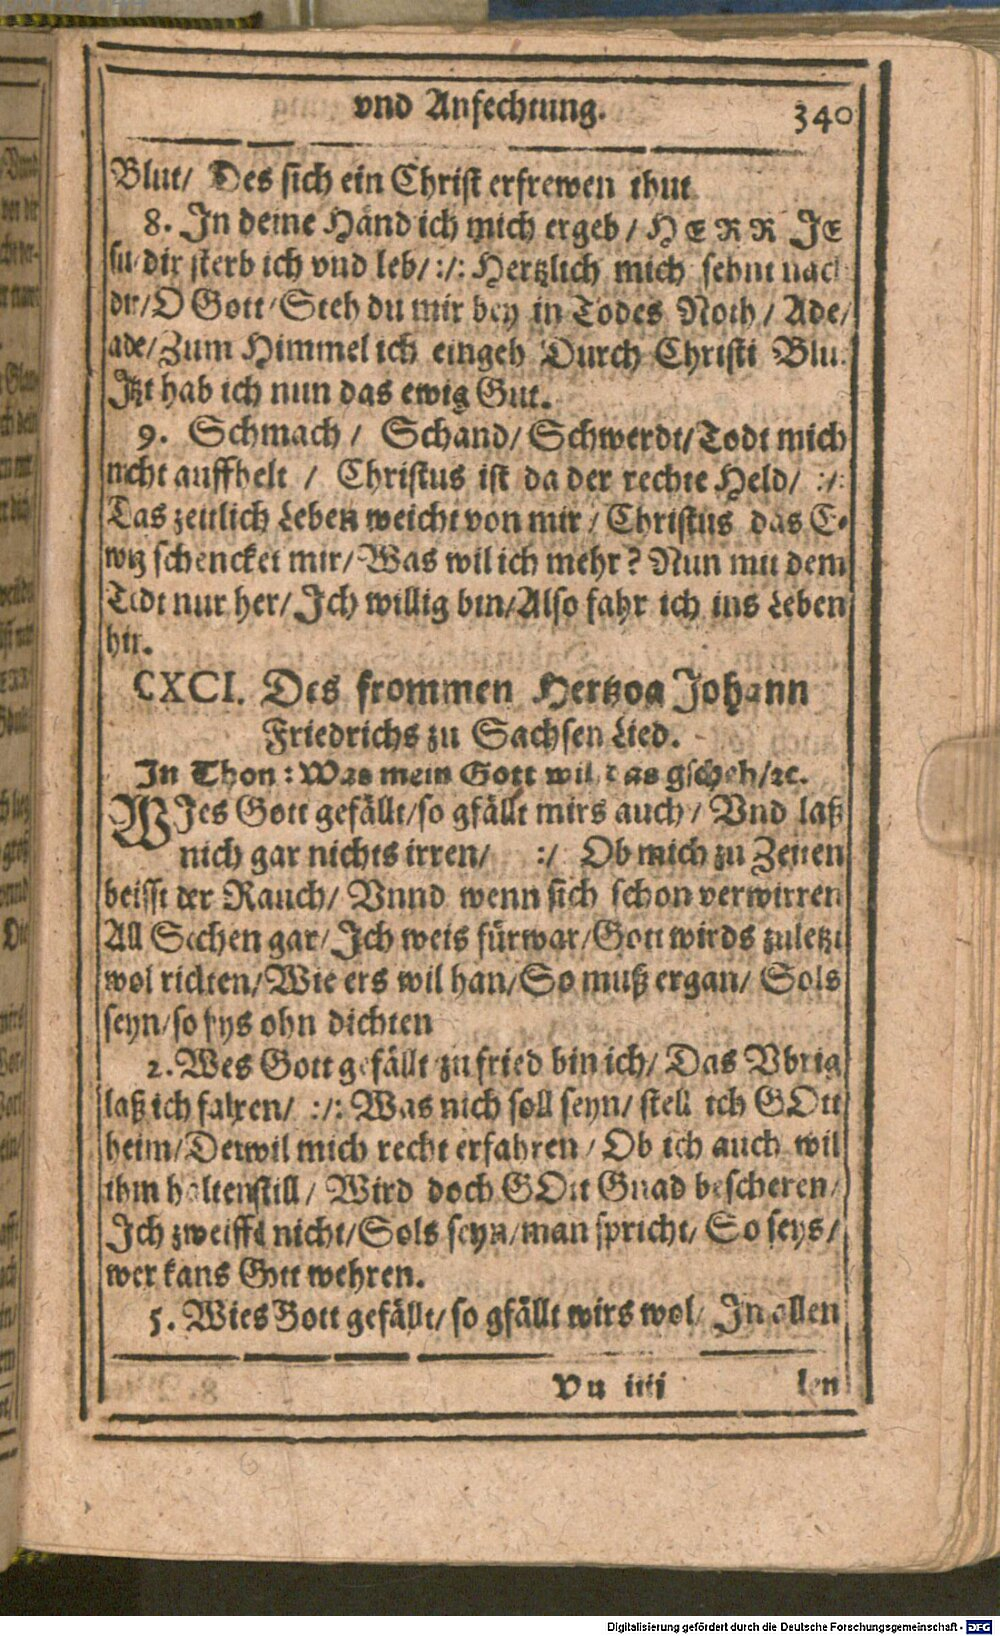 vnd Anfechtung. 340
Blut/ Des sich ein Christ erfrewen thut
8. In deine Händ ich mich ergeb / HERR JE
su/dir sterb ich vnd leb/:/: Hertzlich mich sehnt nach
dir/O Gott/Steh du mir bey in Todes Noth / Ade/
ade/Zum Himmel ich eingeh Durch Christi Blut
Jtzt hab ich nun das ewig Gut.
9. Schmach / Schand/Schwerdt/Todt mich
nicht auffhelt / Christus ist da der rechte Held/ :/:
Das zeitlich Leben weicht von mir / Christus das E-
wig schencket mir/Was wil ich mehr? Nun mit dem
Todt nur her/ Ich willig bin/Also fahr ich ins Leben
hin.
CXCI. Des frommen Hertzog Johann
Friedrichs zu Sachsen Lied.
In Thon: Was mein Gott wil das gscheh/rc.
WIes Gott gefällt/so gfällt mirs auch/ Vnd laß
mich gar nichts irren/ :/ Ob mich zu Zeiten
beisst der Rauch/ Vnnd wenn sich schon verwirren
All Sachen gar/Ich weis fürwar/Gott wirds zuletzt
wol richten/Wie ers wil han/So muß ergan/ Sols
seyn/so sys ohn dichten
2. Wes Gott gefällt zu fried bin ich/ Das Vbrig
laß ich fahren/ :/: Was nich soll seyn/ stell ich GOtt
heim/Der wil mich recht erfahren / Ob ich auch wil
ihm halten still/ Wird doch GOtt Gnad bescheren/
Ich zweiffl nicht/Sols seyn/man spricht/ So seys/
wer kans Gott wehren.
5. Wies Gott gefällt/ so gfällt wirs wol/ In allen
Vu iiij len
Digitalisierung gefördert durch die Deutsche Forschungsgemeinschaft - DFG